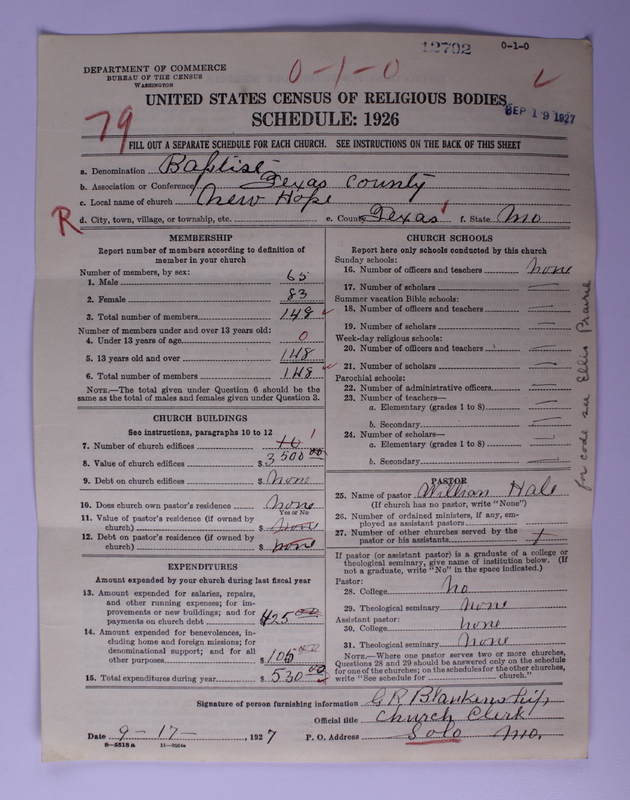 12702 0-1-0
DEPARTMENT OF COMMERCE
BUREAU OF THE CENSUS
WASHINGTON
0-1-0
UNITED STATES CENSUS OF RELIGIOUS BODIES
SEP 19 1927
79
SCHEDULE: 1926
FILL OUT A SEPARATE SCHEDULE FOR EACH CHURCH. SEE INSTRUCTIONS ON THE BACK OF THIS SHEET
a. Denomination Baptist
b. Association or Conference Texas County
c. Local name of church New Hope
R d. City, town, village, or township, etc. e. County Texas f. State Mo
MEMBERSHIP
Report number of members according to definition of
member in your church
Number of members, by sex:
1. Male 65
2. Female 83
3. Total number of members 148
Number of members under and over 13 years old:
4. Under 13 years of age 0
5. 13 years old and over 148
6. Total number of members 148
NOTE.—The total given under Question 6 should be
same as the total of males and females given under Question 3.
CHURCH BUILDINGS
See instructions, paragraphs 10 to 12
7. Number of church edifices 1
8. Value of church edifices $ 3500 00
9. Debt on church edifices $ None
10. Does church own pastor's residence none
Yes or No
11. Value of pastor's residence (if owned by
church) $ none
12. Debt on pastor's residence (if owned by
church) $ none
EXPENDITURES
Amount expended by your church during last fiscal year
13. Amount expended for salaries, repairs,
and other running expenses; for im-
provements or new buildings; and for
payments on church debt 425 00
14. Amount expended for benevolences, in-
cluding home and foreign missions; for
denominational support; and for all
other purposes $ 105 00
15. Total expenditures during year $ 530 00
CHURCH SCHOOLS
Report here only schools conducted by this church
Sunday schools:
16. Number of officers and teachers none
17. Number of scholars
Summer vacation Bible schools:
18. Number of officers and teachers
19. Number of scholars
Week-day religious schools:
20. Number of officers and teachers
21. Number of scholars
Parochial schools:
22. Number of administrative officers
23. Number of teachers—
a. Elementary (grades 1 to 8)
b. Secondary
24. Number of scholars—
a. Elementary (grades 1 to 8)
b. Secondary
for code see Ellis Prairie
PASTOR
25. Name of pastor William Hale
(If church has no pastor, write "None")
26. Number of ordained ministers, if any, em-
ployed as assistant pastors
27. Number of other churches served by the
pastor or his assistants
If pastor (or assistant pastor) is a graduate of a college or
theological seminary, give name of institution below. (If
not a graduate, write "No" in the space indicated.)
Pastor:
28. College No
29. Theological seminary none
Assistant pastor:
30. College none
31. Theological seminary None
NOTE.—Where one pastor serves two or more churches,
Questions 28 and 29 should be answered only on the schedule
for one of the churches; on the schedules for the other churches,
write "See schedule for church."
Signature of person furnishing information G R Blankenship
Official title Church Clerk
Date 9-17-, 1927 P. O. Address Solo Mo.
8-5518a 11-9554a